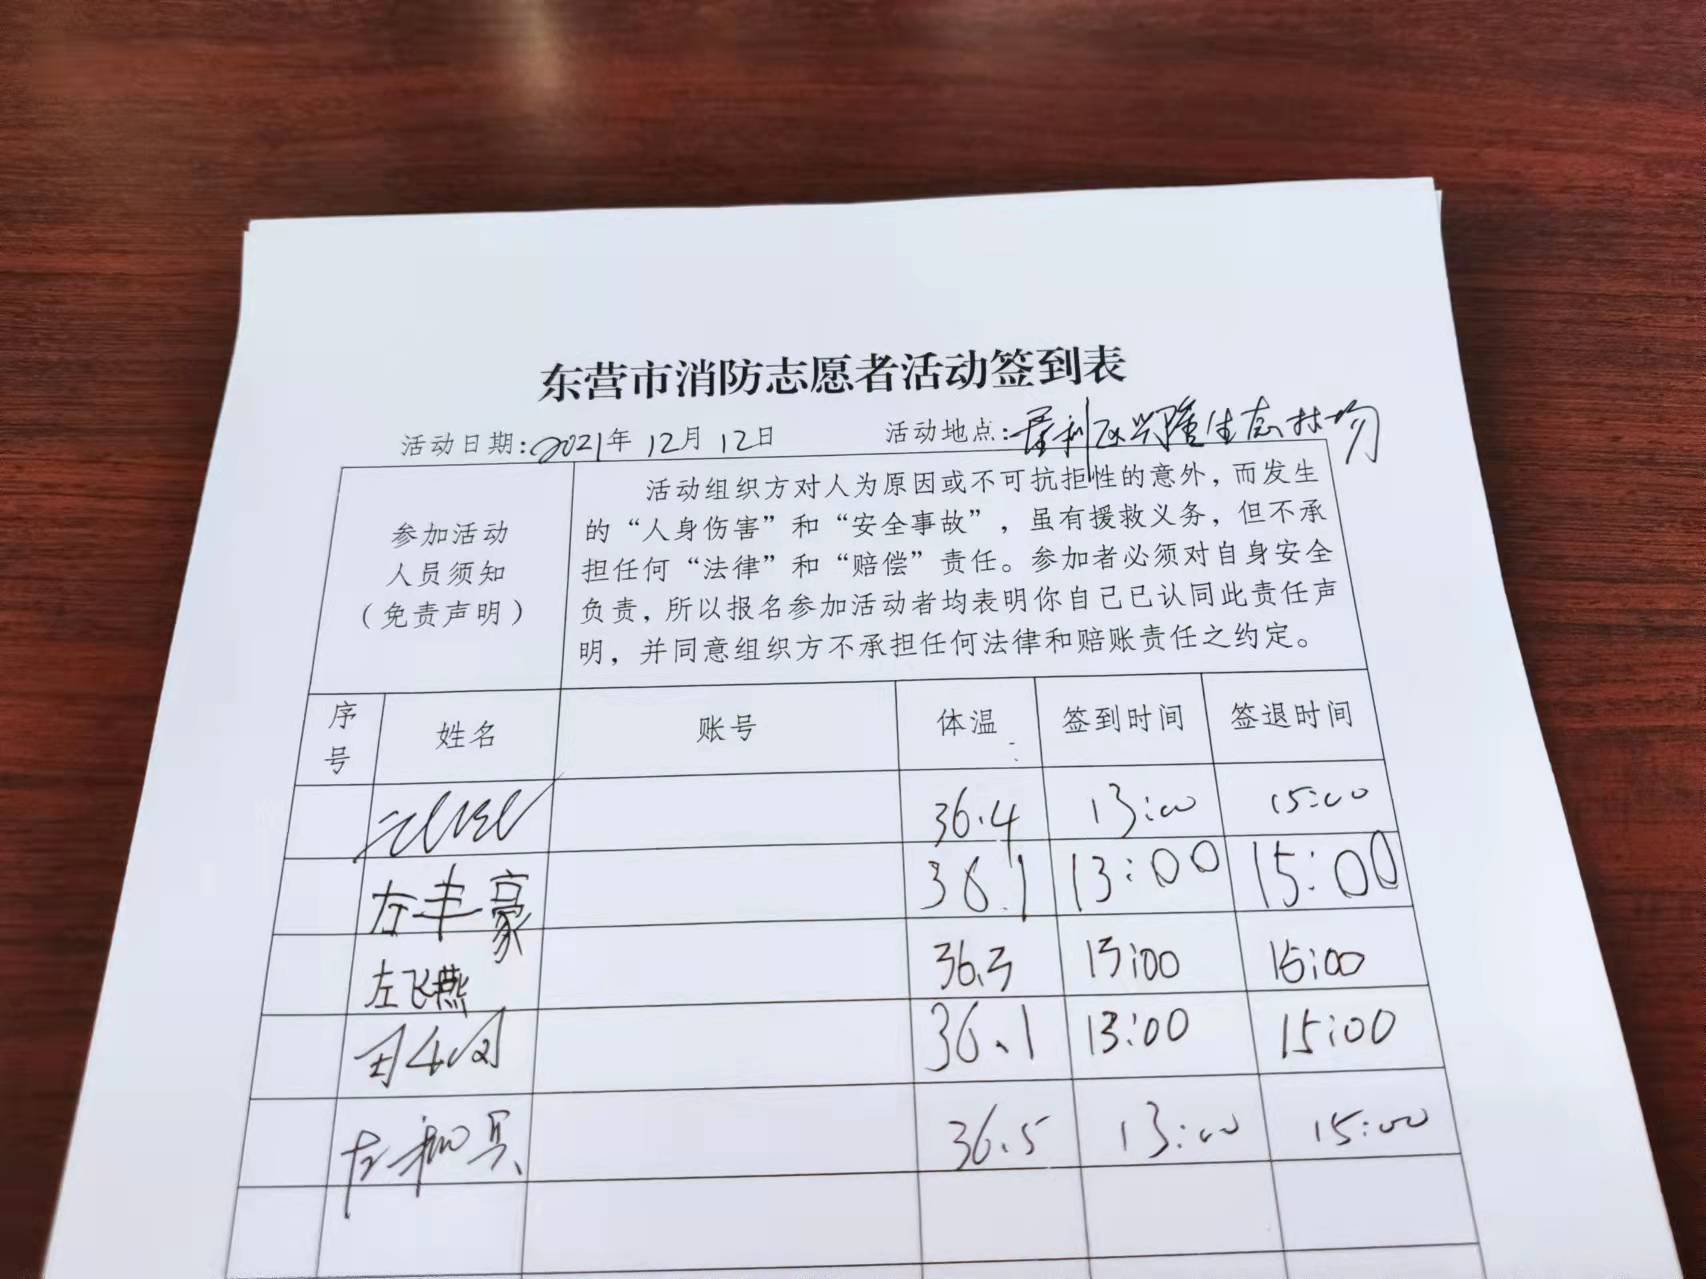 东营市消防志愿者活动签到表
活动日期:2021年12月12日 活动地点:垦利区兴隆生态林场
参加活动
人员须知
(免责声明)
活动组织方对人为原因或不可抗拒性的意外,而发生
的“人身伤害”和“安全事故”,虽有援救义务,但不承
担任何“法律”和“赔偿”责任。参加者必须对自身安全
负责,所以报名参加活动者均表明你自己已认同此责任声
明,并同意组织方不承担任何法律和赔账责任之约定。
序号 姓名 账号 体温 签到时间 签退时间
36.4 13:00 15:00
左丰豪 36.1 13:00 15:00
左飞燕 36.3 13:00 15:00
36.1 13:00 15:00
左 36.5 13:00 15:00